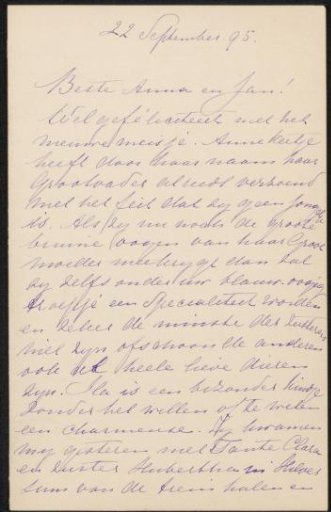 22 September 95.
Beste Anna en Jan!
Wel gefeliciteerd met het
nieuwe meisje. Annekeetje
heeft door haar naam haar
Grootvader alreeds verzoend
met het feit dat zij geen jongetje
is. Als zij nu nog de groote
bruine oogen van haar Groot
moeder meekrijgt dan zal
zij zelfs onder uw blauw-oogig
troepje een specialiteit worden
en zeker de minste der zusters
niet zijn ofschoon de anderen
ook heele lieve dieren
zijn. Ila is een bizonder kindje
zonder het willen of te weten
een charmeuse. Zij kwamen
mij gisteren met Tante Clara
en zuster Hubertina in Hilver
sum van de trein halen en